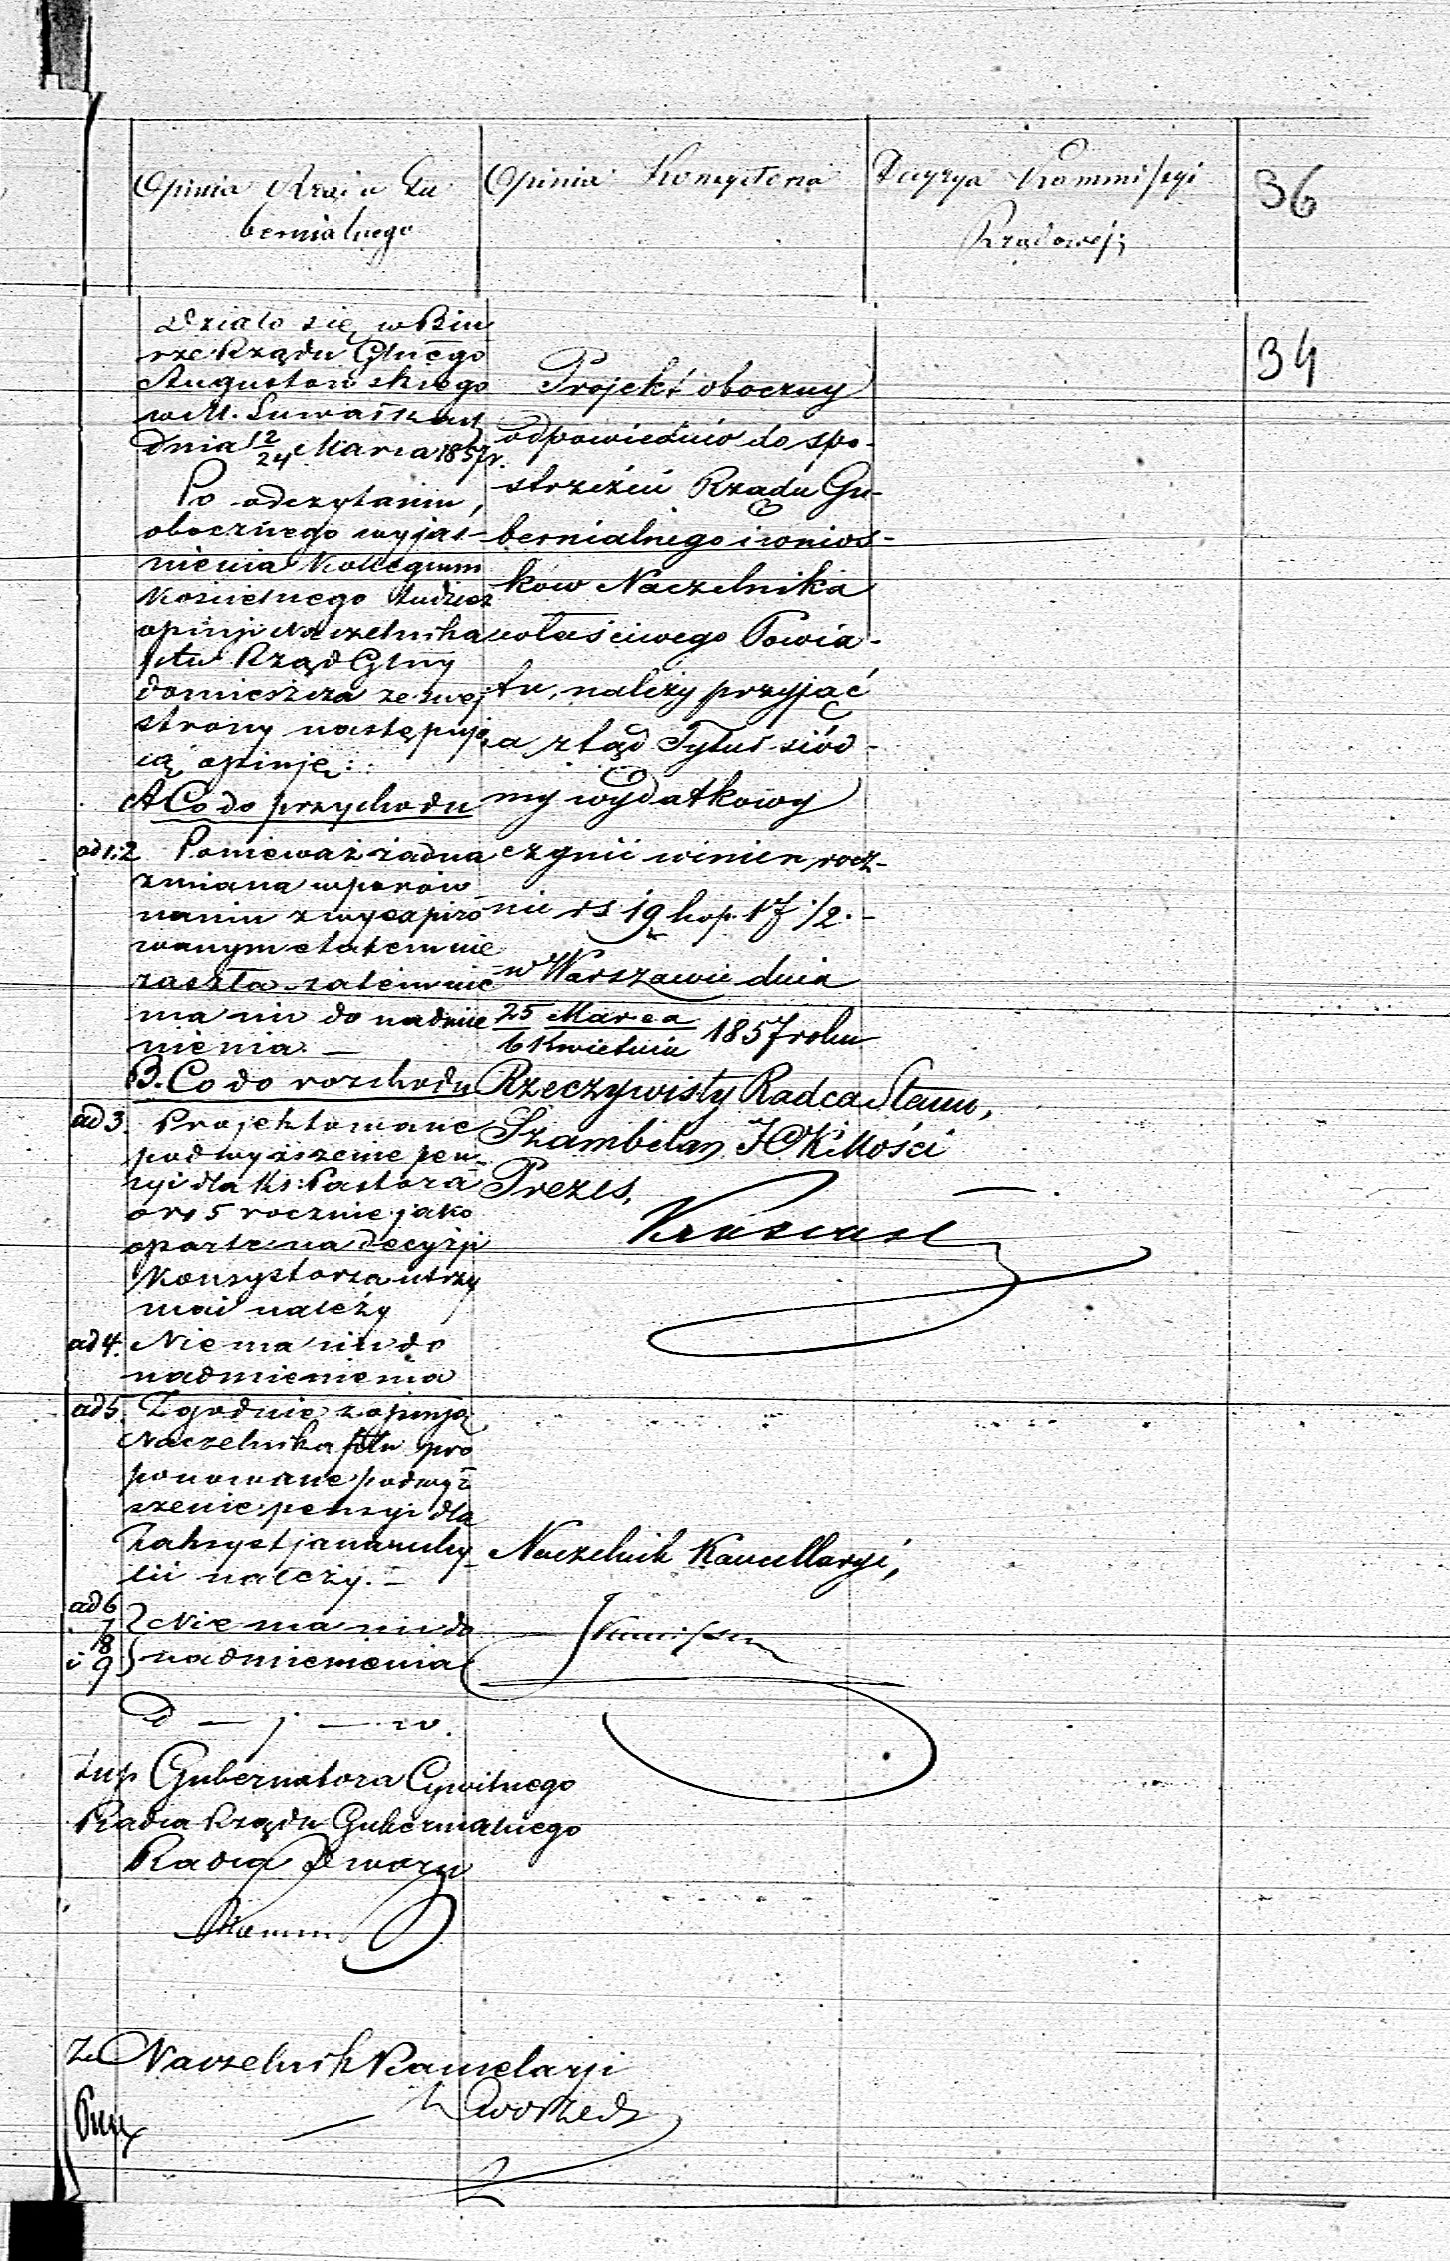 Opinia Rządu Gu
bernialnego
Opinia Konsystorza
Decyzya Kommissyi
Rządowej;
36
34
Działo się w Biu
rze Rządu Glnego
Augustowskiego
w M. Suwałkach
dnia 12/24 Marca 1857 r.
Po odczytaniu,
obocznego wyjaś-
nienia Kollegium
Kościelnego tudzież
opinji Naczelnika
Ptu Rząd Glny
domieszcza ze swej
strony następują
cą opinję:
A Co do przychodu
ad 1. 2 Ponieważ żadna
zmiana w porów
naniu z wyexpiro
wanym etatem nie
zaszła zatem nic
ma nic do nadmie
nienia. —
B. Co do rozchodu
ad 3. Projektowane
podwyższenie pen-
syi dla Ks: Pastora
o rs 5 rocznie jako
oparte na decyzji
Konsystorza utrzy
mać należy
ad 4. Nie ma nic do
nadmienienia
ad 5. Zgodnie z opinją
Naczelnika Ptu pro
ponowane podwyż
szenie pensyi dla
Zakrystjana uchy
lić należy. —
ad 6
7 Nie ma nic do
8
i 9 nadmienienia
D — j — w.
Zup Gubernatora Cywilnego
Radca Rządu Gubernialnego
Radca Dworu
Za Naczelnik Kancelarji
Projekt oboczny
odpowiednio do spo-
strzeżeń Rządu Gu-
bernialnego i wnios-
ków Naczelnika
właściwego Powia-
tu, należy przyjąć
a ztąd Tytuł siód-
my wydatkowy
czynić winien rocz-
nie rs 19 kop. 17 1/2. —
w Warszawie dnia
25 Marca
6 Kwietnia 1857 roku
Rzeczywisty Radca Stanu,
Szambelan JCKMości
Prezes,
Naczelnik Kancellaryi,